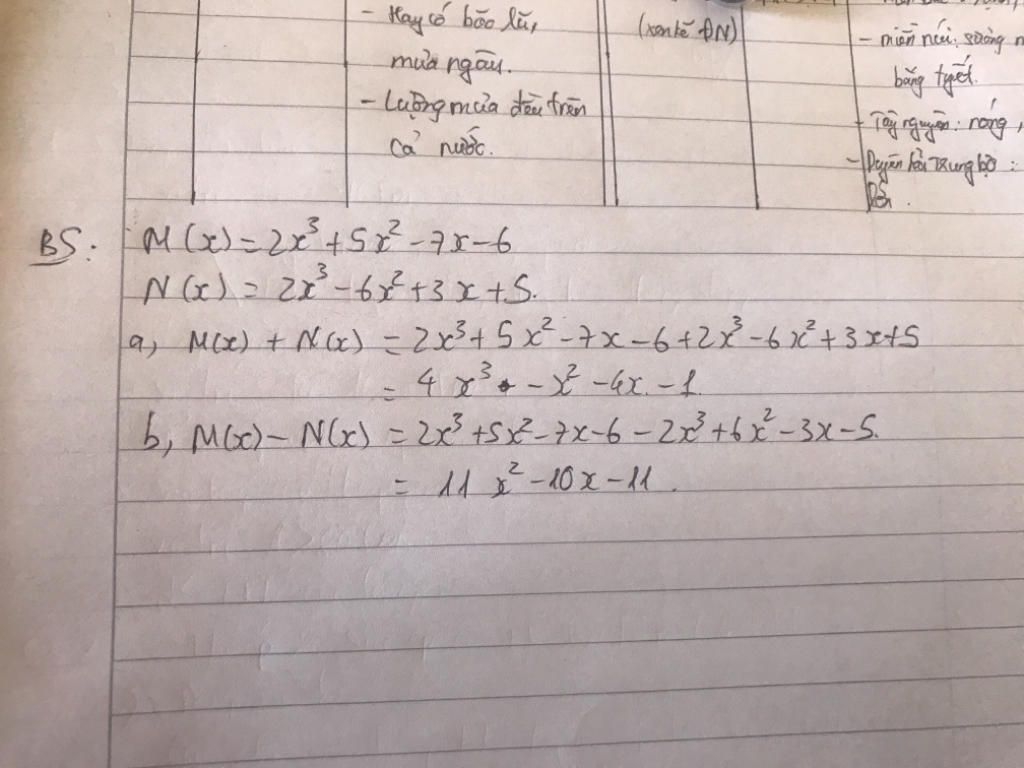 - Hay có bão lũ,
mưa ngâu.
- Lượng mưa đều trên
cả nước.
(xen kẽ ĐN)
- miền núi: sương
băng tuyết.
- Tây nguyên: nóng,
- Duyên hải Trung bộ:
B5:
M(x) = 2x³ + 5x² - 7x - 6
N(x) = 2x³ - 6x² + 3x + 5.
a, M(x) + N(x) = 2x³ + 5x² - 7x - 6 + 2x³ - 6x² + 3x + 5
= 4x³ - x² - 4x - 1.
b, M(x) - N(x) = 2x³ + 5x² - 7x - 6 - 2x³ + 6x² - 3x - 5.
= 11x² - 10x - 11.